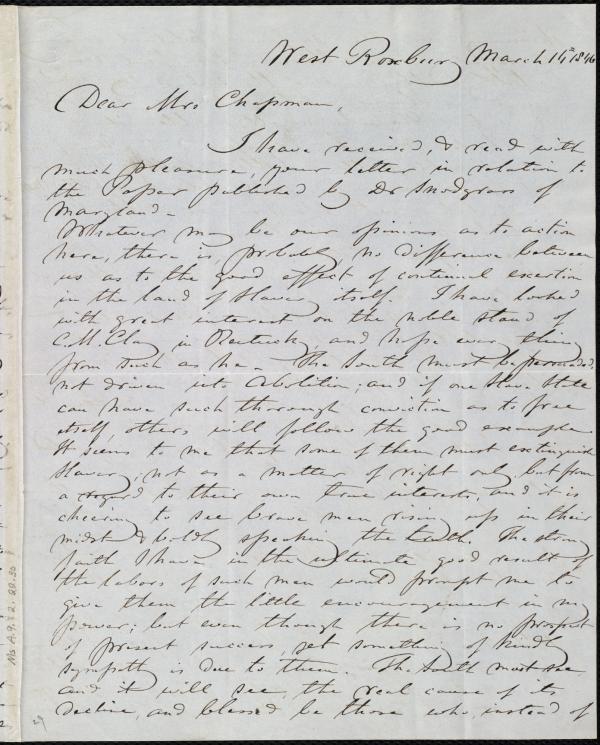 West Roxbury March 14th 1846
Dear Mrs Chapman,
I have received, & read with
much pleasure, your letter in relation to
the Paper published by Dr Snodgrass of
Maryland.
Whatever may be our opinions as to action
here, there is, probably, no difference between
us as to the good effect of continued exertion
in the land of Slavery itself. I have looked
with great interest on the noble stand of
C. M. Clay in Kentucky, and hope every thing
from such as he. The South must be persuaded,
not driven into Abolition; and if one Slave State
can have such thorough conviction as to free
itself, others will follow the good example.
It seems to me that some of them must extinguish
Slavery, not as a matter of right only, but from
a regard to their own true interests, and it is
cheering to see brave men rising up in their
midst & boldly speaking the truth. The strong
faith I have in the ultimate good result of
the labors of such men would prompt me to
give them the little encouragement in my
power; but even though there is no prospect
of present success, yet something of kindly
sympathy is due to them. The South must see,
and it will see, the real cause of its
decline, and blessed be those who, instead of
Ms A.9.2 22.30
29